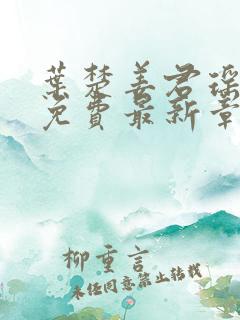 葉楚姜君瑤
免費最新章
柳重言
未经同意禁止转载